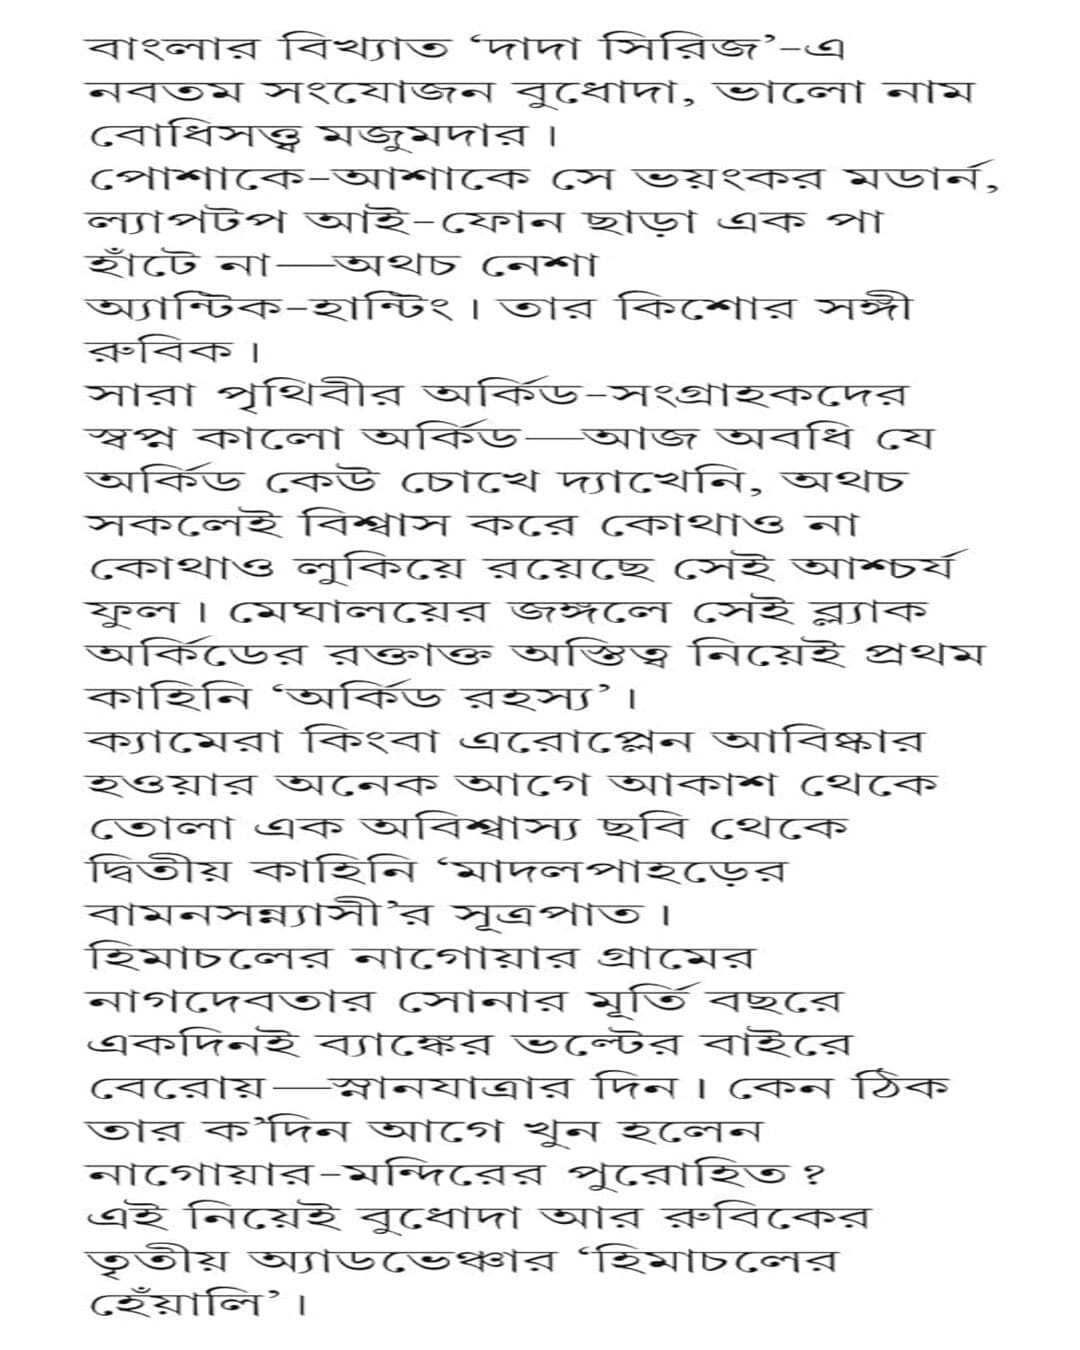 বাংলার বিখ্যাত ‘দাদা সিরিজ’-এ
নবতম সংযোজন বুধোদা, ভালো নাম
বোধিসত্ত্ব মজুমদার।
পোশাকে-আশাকে সে ভয়ংকর মডার্ন,
ল্যাপটপ আই-ফোন ছাড়া এক পা
হাঁটে না—অথচ নেশা
অ্যান্টিক-হান্টিং। তার কিশোর সঙ্গী
রুবিক।
সারা পৃথিবীর অর্কিড-সংগ্রাহকদের
স্বপ্ন কালো অর্কিড—আজ অবধি যে
অর্কিড কেউ চোখে দ্যাখেনি, অথচ
সকলেই বিশ্বাস করে কোথাও না
কোথাও লুকিয়ে রয়েছে সেই আশ্চর্য
ফুল। মেঘালয়ের জঙ্গলে সেই ব্ল্যাক
অর্কিডের রক্তাক্ত অস্তিত্ব নিয়েই প্রথম
কাহিনি ‘অর্কিড রহস্য’।
ক্যামেরা কিংবা এরোপ্লেন আবিষ্কার
হওয়ার অনেক আগে আকাশ থেকে
তোলা এক অবিশ্বাস্য ছবি থেকে
দ্বিতীয় কাহিনি ‘মাদলপাহড়ের
বামনসন্ন্যাসী’র সূত্রপাত।
হিমাচলের নাগোয়ার গ্রামের
নাগদেবতার সোনার মূর্তি বছরে
একদিনই ব্যাঙ্কের ভল্টের বাইরে
বেরোয়—স্নানযাত্রার দিন। কেন ঠিক
তার ক’দিন আগে খুন হলেন
নাগোয়ার-মন্দিরের পুরোহিত?
এই নিয়েই বুধোদা আর রুবিকের
তৃতীয় অ্যাডভেঞ্চার ‘হিমাচলের
হেঁয়ালি’।